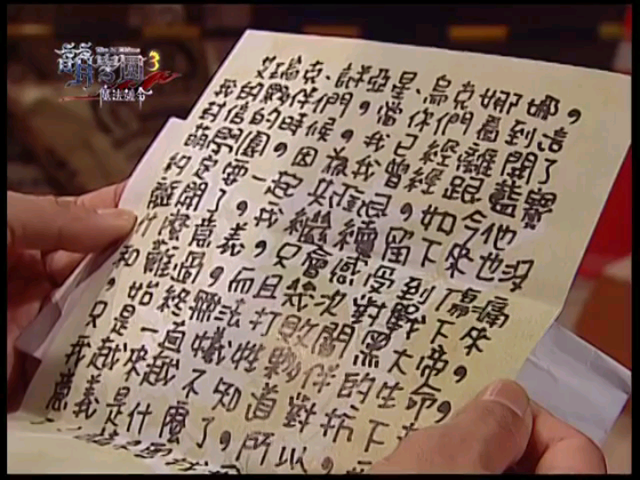 萌學園3
魔法號令
艾瑞克、謎亞星、烏克娜娜,
我的夥伴們,當你們看到這
封信的時候,我已經離開了
萌學園,因為我曾經跟藍寶
約定要一起共進退,如今他
離開了,我繼續留下來也沒
什麼意義,只會感受到傷痛
和難過,而且幾次對戰下來
,始終無法打敗闇黑大帝,
只是一直犧牲夥伴的生命,
我越來越不知道對抗下
意義是什麼了,所以,